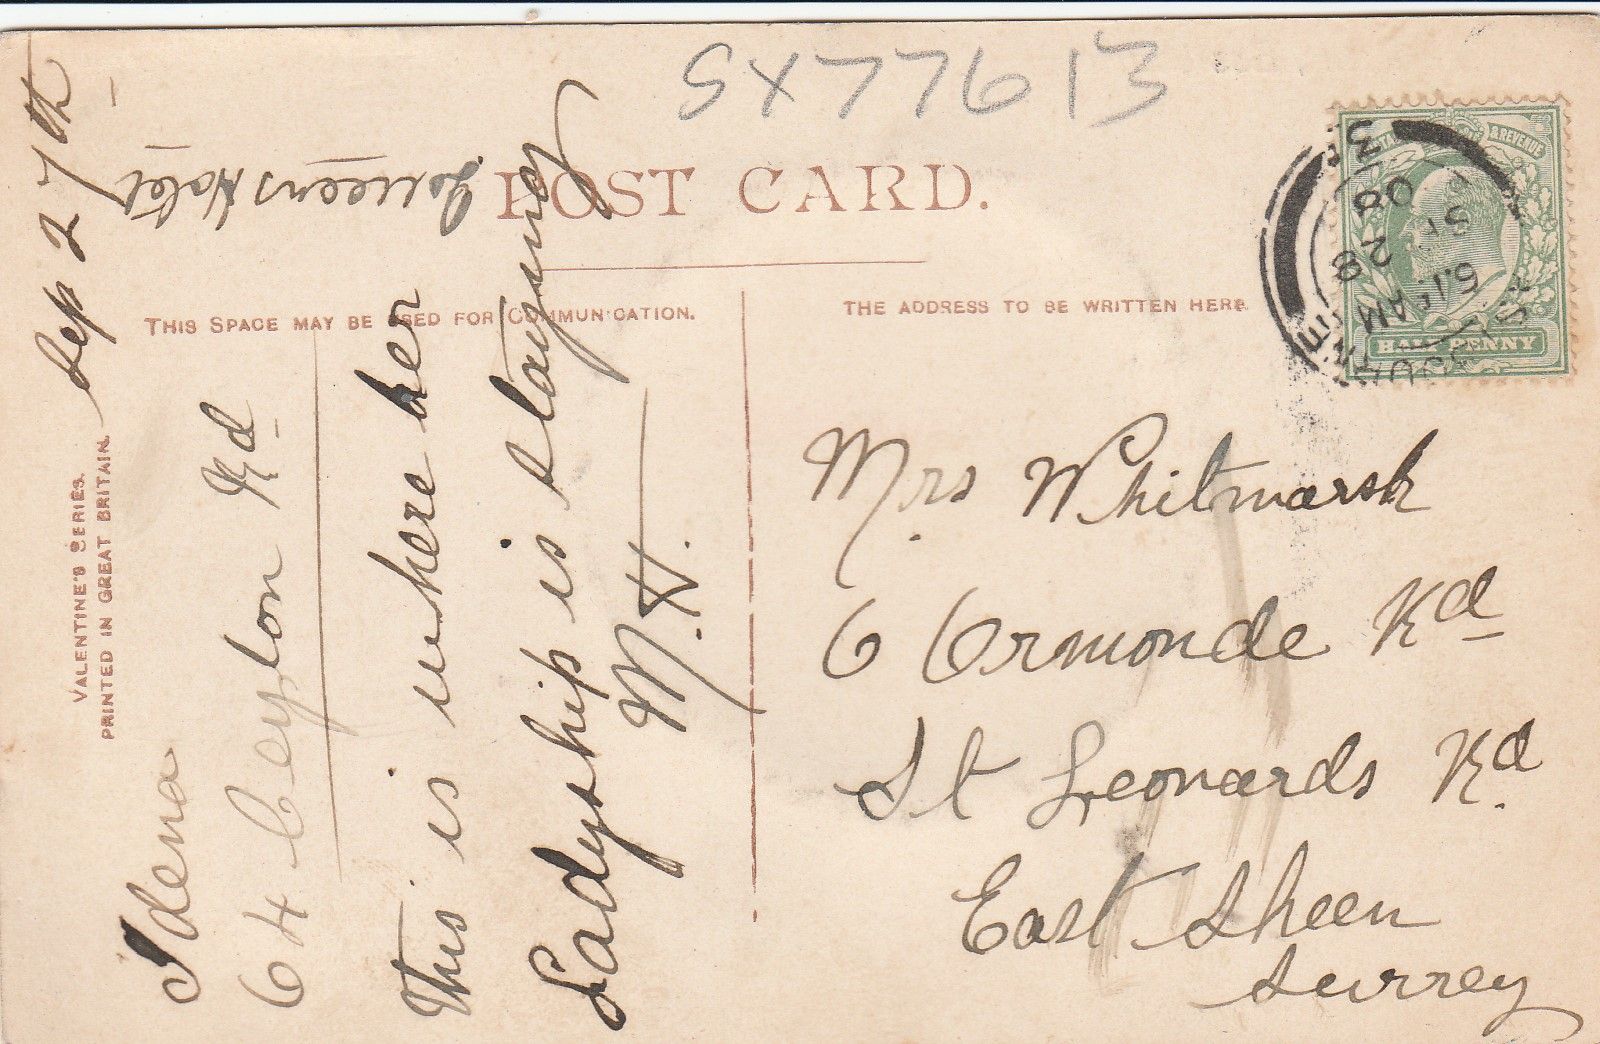 SX77613
POST CARD.
THIS SPACE MAY BE USED FOR COMMUNICATION.
THE ADDRESS TO BE WRITTEN HERE.
VALENTINE'S SERIES.
PRINTED IN GREAT BRITAIN.
Sep 27th
Idena
64 Ceylon Rd
This is where her
Ladyship is staying
M.H.
Queens Hotel
Mrs Whitmarsh
6 Ormonde Rd
St Leonards Rd
East Sheen
Surrey
& REVENUE
HALF PENNY
6.15 AM
SP 28
08